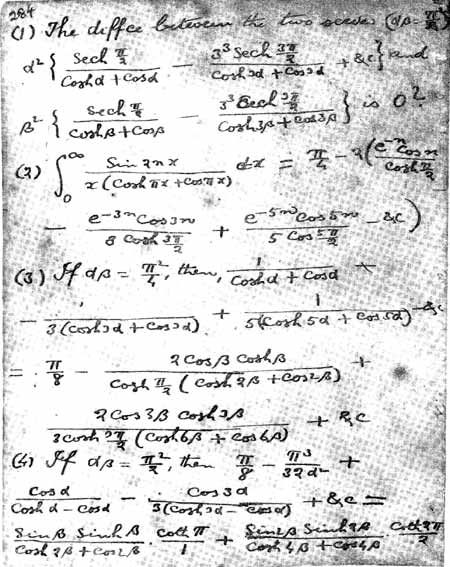 284
(1) The diffce between the two series (αβ = π²/4)
α² { sech π/2 / (cosh α + cos α) − 3³ sech 3π/2 / (cosh 3α + cos 3α) + &c } and
β² { sech π/2 / (cosh β + cos β) − 3³ sech 3π/2 / (cosh 3β + cos 3β) } is 0?
(2) ∫₀^∞ sin 2nx / (x (cosh πx + cos πx)) dx = π/4 − 2 ( e⁻ⁿ cos n / cosh π/2
− e⁻³ⁿ cos 3n / 3 cosh 3π/2 + e⁻⁵ⁿ cos 5n / 5 cos 5π/2 − &c )
(3) If αβ = π²/4, then, 1 / (cosh α + cos α)
− 1 / 3(cosh 3α + cos 3α) + 1 / 5(cosh 5α + cos 5α) − &c
= π/8 − 2 cos β cosh β / cosh π/2 (cosh 2β + cos 2β) +
2 cos 3β cosh 3β / 3 cosh 3π/2 (cosh 6β + cos 6β) + &c
(4) If αβ = π²/2, then π/8 − π³/32α² +
cos α / (cosh α − cos α) − cos 3α / 3(cosh 3α − cos 3α) + &c =
sin β sinh β / (cosh 2β + cos 2β) · coth π / 1 + sin 2β sinh 2β / (cosh 4β + cos 4β) · coth 2π / 2